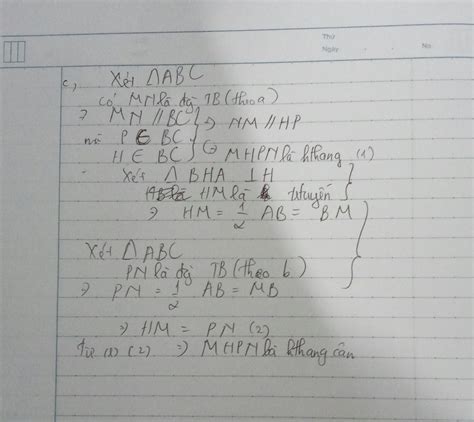 Thứ
Ngày
No.
c, Xét ΔABC
có MN là đg TB (theo a)
⇒ MN // BC
mà P ∈ BC ⇒ NM // HP
H ∈ BC ⇒ MHPN là hthang (1)
Xét Δ BHA ⊥ H
HM là trtuyến
⇒ HM = 1/2 AB = BM
Xét ΔABC
PN là đg TB (theo b)
⇒ PN = 1/2 AB = MB
⇒ HM = PN (2)
từ (1) (2) ⇒ MHPN là hthang cân